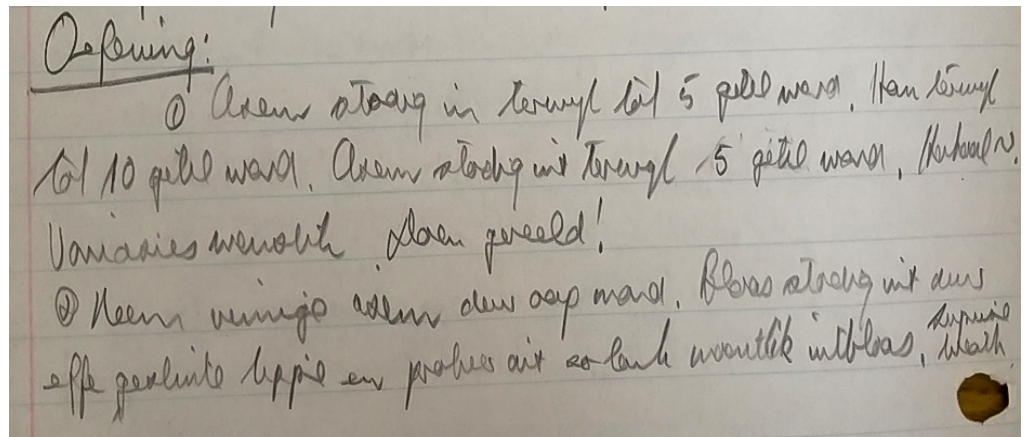 Oefening:
① Asem stadig in terwyl tot 5 getel word. Hou terwyl
tot 10 getel word. Asem stadig uit terwyl 5 getel word. Herhaal
Variasies moontlik. Doen gereeld!
② Neem vinnige asem deur oop mond. Blaas stadig uit deur
effe geslote lippe en probeer uit so lank moontlik uitblaas,